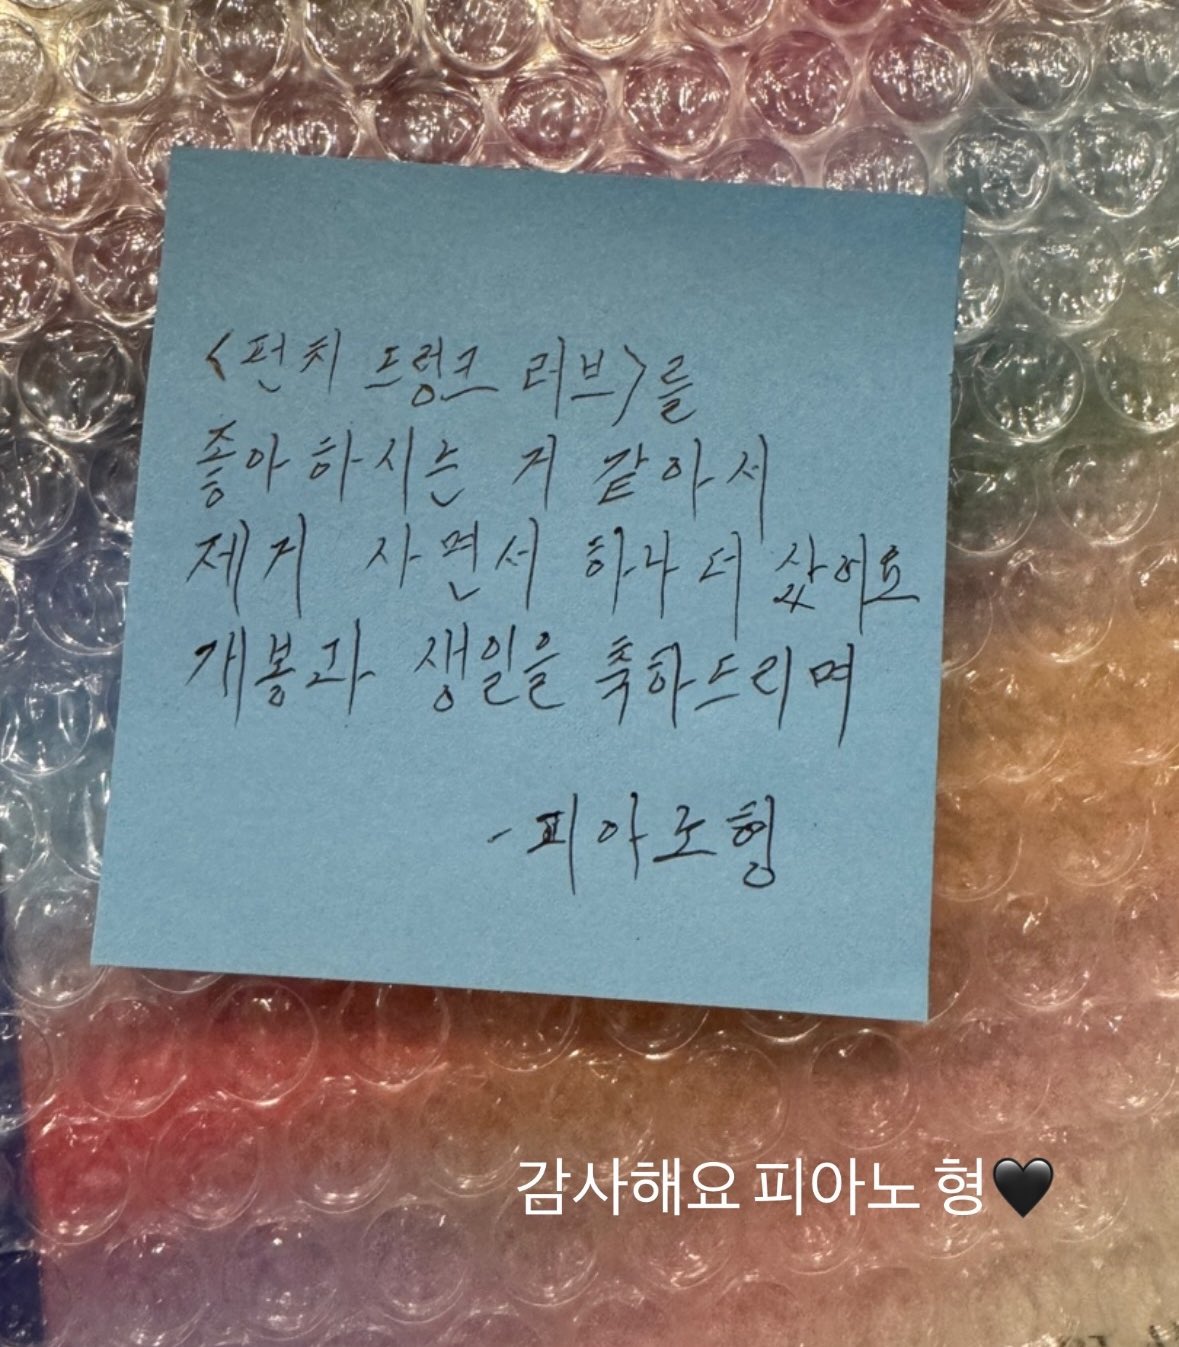 <펀치 드렁크 러브>를
좋아하시는 거 같아서
제거 사면서 하나 더 샀어요
개봉과 생일을 축하드리며
- 피아노형
감사해요 피아노 형🖤